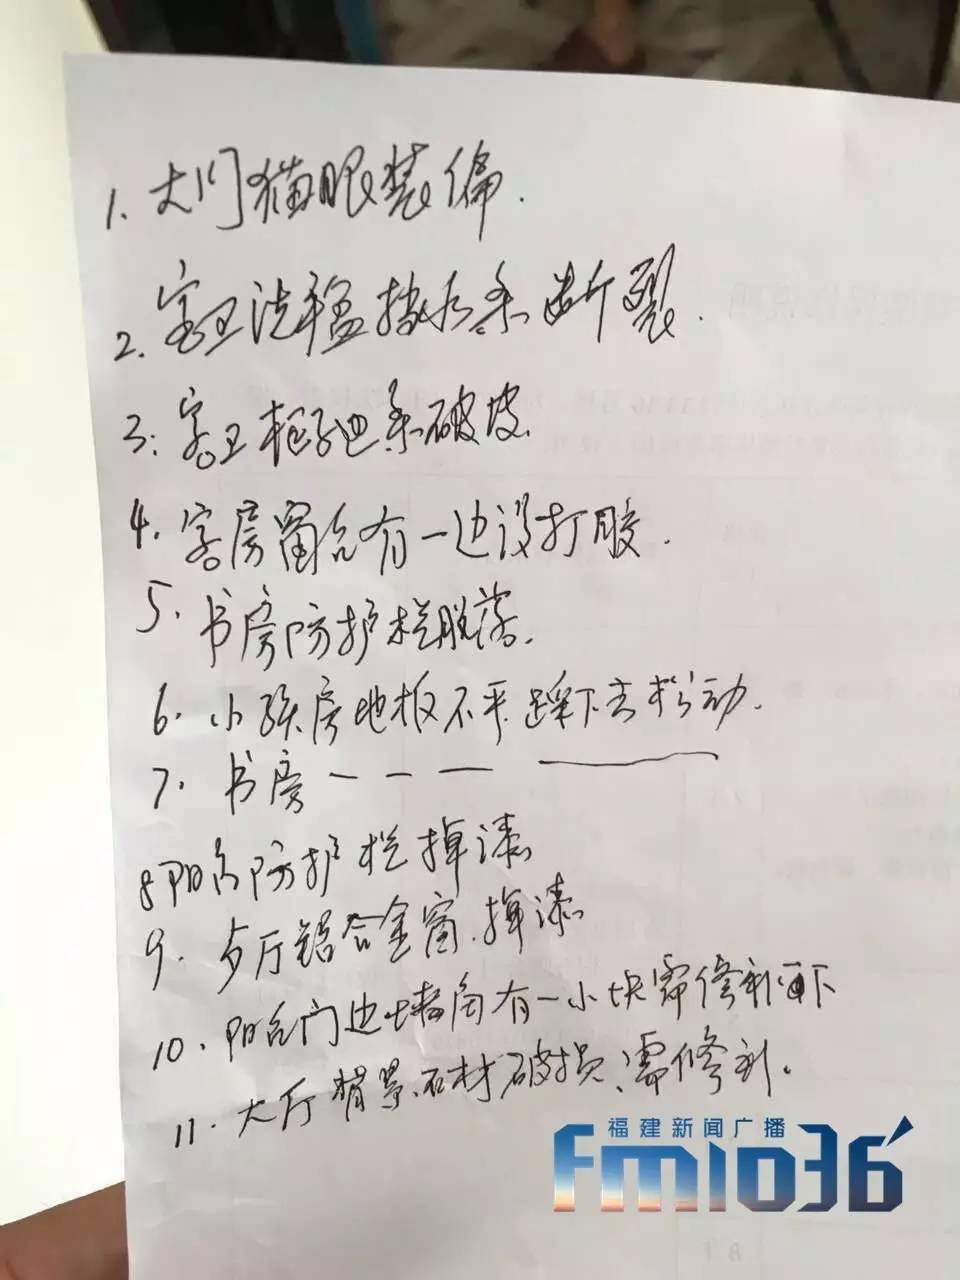 1. 大门猫眼装偏.
2. 客卫洗手盆挡水条断裂.
3: 客卫柜子边条破皮.
4. 客房窗台有一边没打胶.
5. 书房防护栏脱落.
6. 小孩房地板不平 踩下去松动.
7. 书房 — — — ———
8 阳台防护栏掉漆
9. 歺厅铝合金窗.掉漆
10. 阳台门边墙角有一小块需修补
11. 大厅背景石材破损、需修补。
福建新闻广播
FM1036